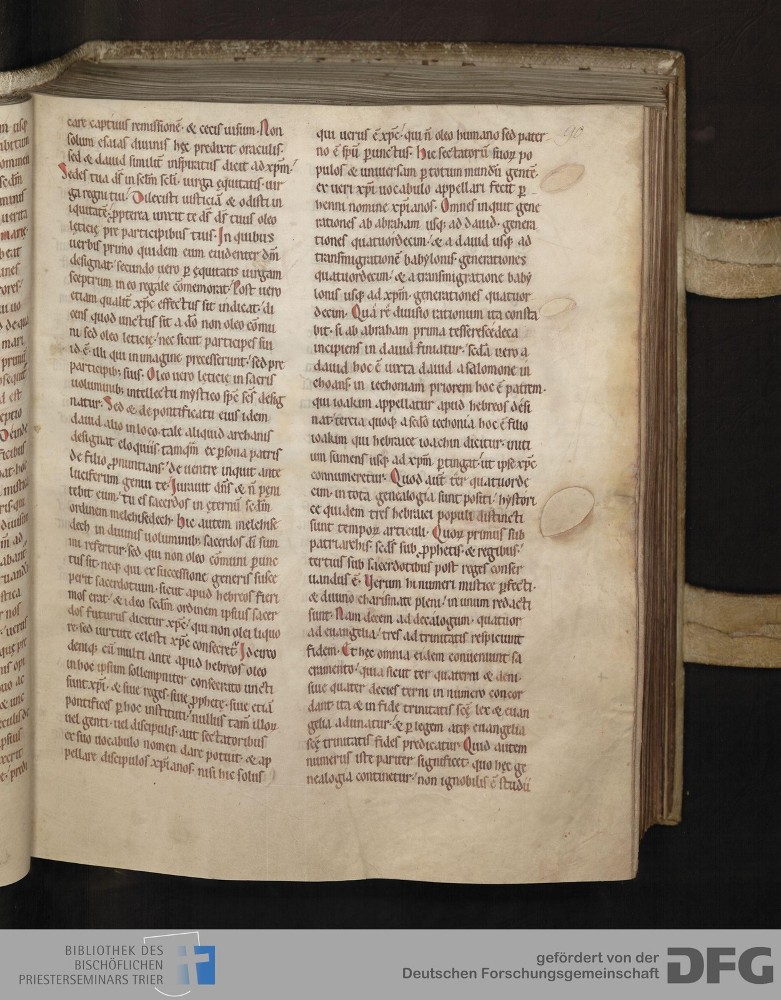 care captiuis remissionē · & cecis uisum · Non
solum esaias diuinis hęc predixit oraculis ·
sed & dauid similit̄ inspiratus dicit ad xp̄m ·
Sedes tua d̄s in sclm̄ scli · uirga ęquitatis uir
ga regni tui · Dilexisti iusticiā & odisti in
iquitatē · ꝓpterea unxit te d̄s d̄s tuus oleo
leticię pre participibus tuis · In quibus
uerbis primo quidem eum euidenter dm̄
designat · secundo uero ꝑ ęquitatis uirgam
sceptrum in eo regale cōmemorat · Post uero
etiam qualit̄ xp̄c effectus sit indicat · di
cens quod unctus sit a dō non oleo cōmu
ni sed oleo leticię · nec sicut participes sui
id · ē · illi qui in imagine precesserunt · sed pre
participib; suis · Oleo uero leticię in sacris
uoluminib; intellectu mystico sp̄c sc̄s desig
natur · Sed & de pontificatu eius idem
dauid alio in loco tale aliquid archanis
designat eloquiis · tamqm̄ ex persona patris
de filio ꝓnuntians · De uentre inquit ante
luciferum genui te · Iurauit dn̄s & n̄ pęni
tebit eum · tu es sacerdos in ęternū scdm̄
ordinem melchisedech · Hic autem melchise
dech in diuinis uoluminib; sacerdos dī sum
mi refertur · sed qui non oleo cōmuni ꝑunc
tus sit · neq; qui ex successione generis susce
perit sacerdotium · sicut apud hebreos fieri
mos erat · & ideo scdm̄ ordinem ipsius sacer
dos futurus dicitur xp̄c · qui non olei liquo
re · sed uirtute celesti xp̄c consecret᷑ · Id circo
deniq; cū multi ante apud hebreos oleo
in hoc ipsum sollempniter consecrato uncti
sunt xp̄i · & siue reges · siue ꝓphetę · siue etiā
pontifices ꝑ hoc instituti · nullus tam̄ illoꝝ
uel genti · uel discipulis · aut sectatoribus
ex suo uocabulo nomen dare potuit · & ap
pellare discipulos xp̄ianos · nisi hic solus
90
qui uerus ē xp̄c · qui n̄ oleo humano sed pater
no ē sp̄u ꝑunctus · Hic sectatorū suoꝝ po
pulos & uniuersam ꝑ totum mundū gentē
ex ueri xp̄i uocabulo appellari fecit ꝑ
henni nomine xp̄ianos · Omnes inquit gene
rationes ab abraham usq; ad dauid · genera
tiones quatuordecim · & a dauid usq; ad
transmigrationē babylonis generationes
quatuordecim · & a transmigratione baby
lonis usq; ad xp̄m · generationes quatuor
decim · Quā rē diuisio rationum ita consta
bit · si ab abraham prima tesserescedeca
incipiens in dauid finiatur · scd̄a uero a
dauid hoc ē iuxta dauid a salomone in
choans in iechoniam priorem hoc ē patrem ·
qui ioakim appellatur apud hebreos desi
nat · tercia quoq; a scd̄o iechonia hoc ē filio
ioakim qui hebraice ioachin dicitur · initi
um sumens usq; ad xp̄m ꝑtingat · ut ipse xp̄c
connumeretur · Quod aut̄ ter quatuorde
cim · in tota genealogia sunt positi · hystori
ce quidem tres hebraici populi distincti
sunt tempoꝝ articuli · Quoꝝ primus sub
patriarchis · scd̄s sub ꝓphetis & regibus ·
tertius sub sacerdotibus post reges conser
uandus ē · Uerum hi numeri mistice ꝑfecti ·
& diuino charismate pleni · in unum redacti
sunt · Nam decem ad decalogum · quatuor
ad euangelia · tres ad trinitatis respiciunt
fidem · Et hęc omnia eidem conueniunt sa
cramento · quia sicut ter quaterni & deni ·
siue quater decies terni in numero concor
dant · ita & in fide trinitatis scę lex & euan
gelia adunatur · & ꝑ legem atq; euangelia
scę trinitatis fides predicatur · Quid autem
numerus iste pariter significet · quo hęc ge
nealogia continetur · non ignobilis ē studii
BIBLIOTHEK DES
BISCHÖFLICHEN
PRIESTERSEMINARS TRIER
gefördert von der
Deutschen Forschungsgemeinschaft
DFG